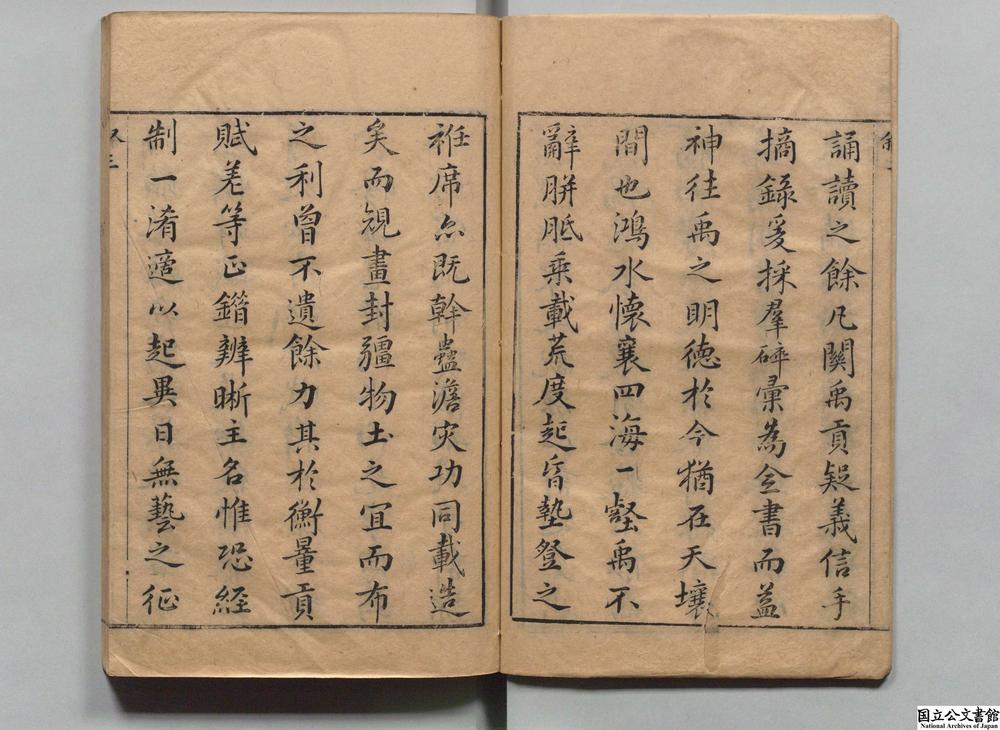 誦讀之餘凡關禹貢疑義信手
摘錄爰採羣碎彙為全書而益
神往禹之明德於今猶在天壤
間也鴻水懷襄四海一壑禹不
辭胼胝乘載荒度起昏墊登之
袵席尒既幹蠱澹灾功同載造
矣而規畫封疆物土之宜而布
之利曾不遺餘力其於衡量貢
賦差等正錯辨晰主名惟恐經
制一淆適以起異日無藝之征
国立公文書館
National Archives of Japan